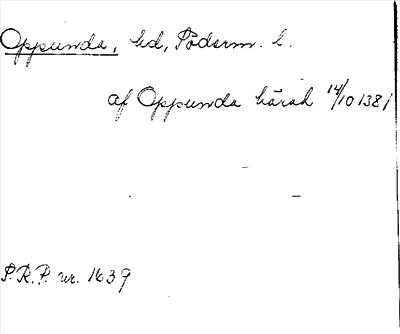 Oppunda, hd, Söderm. l.
af Oppunda häradh 14/10 1381
S.R.P. nr. 1639